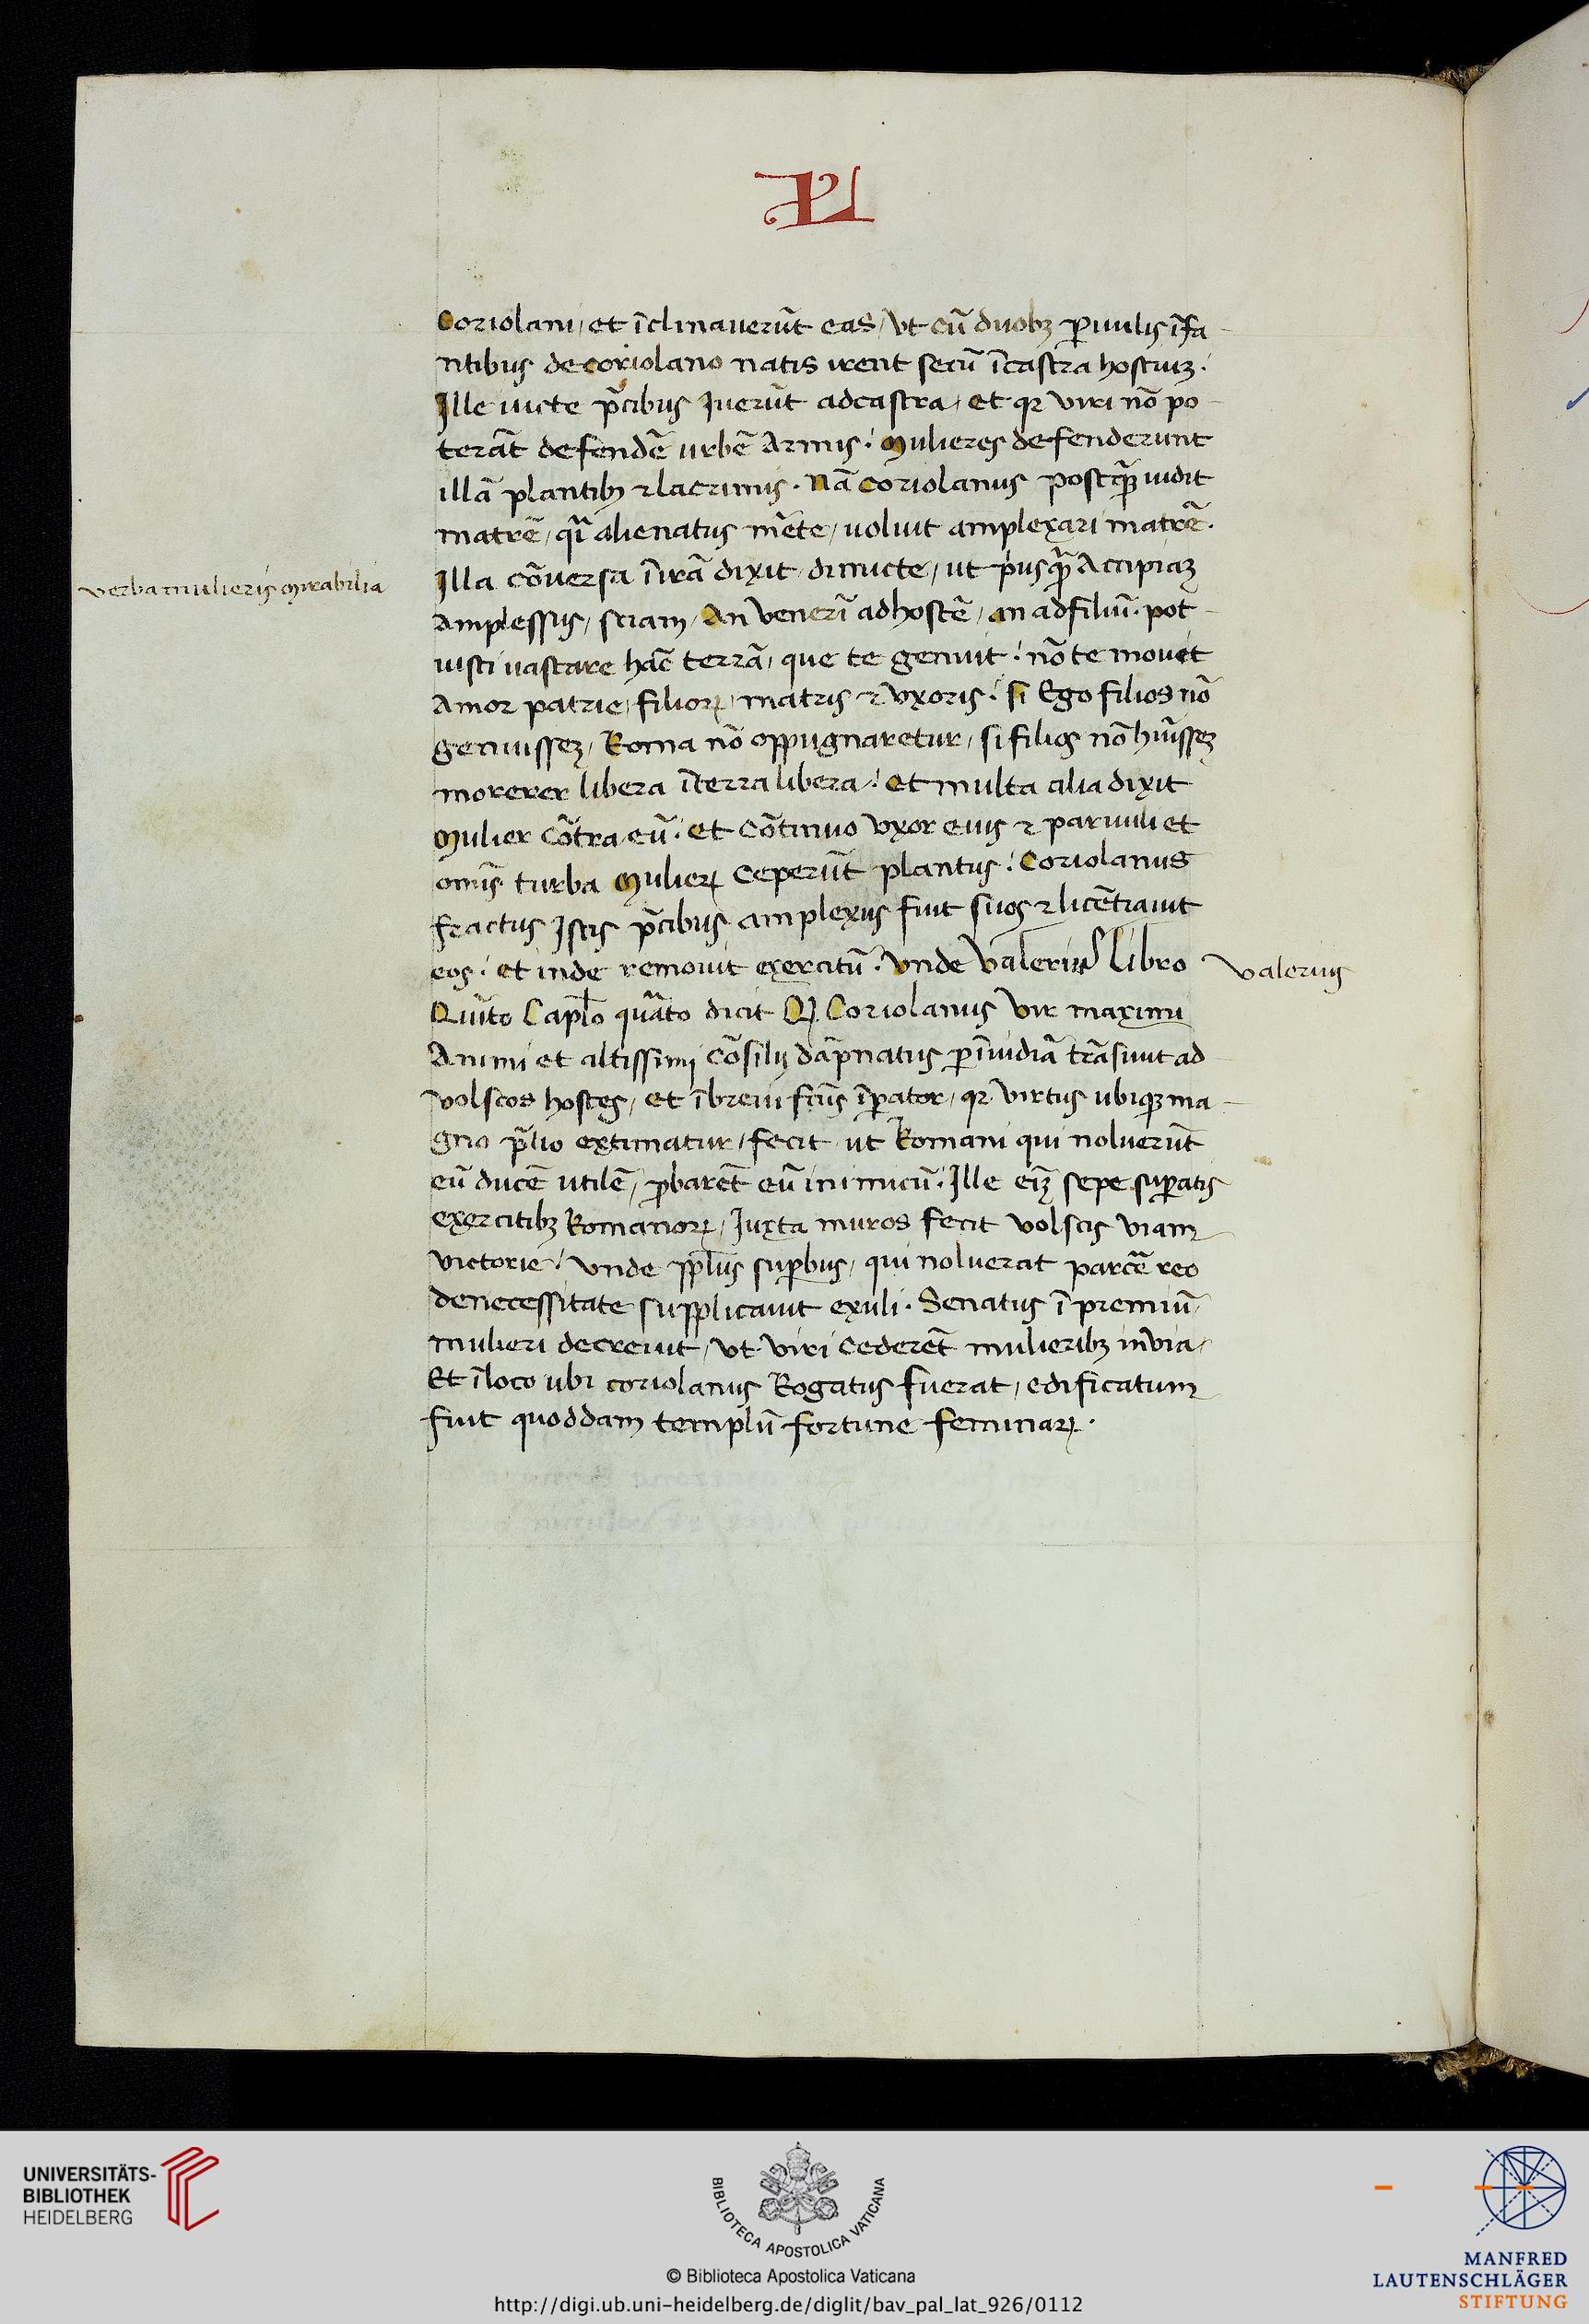 Coriolani / et īclinauerūt eas / vt cū duobꝫ ꝑuulis īfa-
ntibus de coriolano natis irent secū ī castra hostiuꝫ.
Ille uicte p̄cibus Iuerūt ad castra / et qꝛ viri nō po-
terāt defendē̄ urbē Armis: Mulieres defenderunt
illā plantibꝫ ⁊ lacrimis. Nā Coriolanus postq̄ꝫ uidit
matrē / q̄i alienatus m̄te / uoluit amplexari matrē.
verba mulieris mirabilia
Illa cōuersa ī irā dixit dimicte / ut p̄usq̄ꝫ Accipiaꝫ
Amplessus / sciam / An venerī ad hostē / an ad filiū. pot-
uisti uastare hāc terrā / que te genuit: nō te mouet
Amor patrie / filioꝝ / matris ⁊ vxoris: si Ego filios nō
genuisseꝫ / Roma nō oppugnaretur / si filios nō hūisseꝫ
morerer libera ī terra libera /: et multa alia dixit
Mulier cōtra eū: et cōtinuo vxor eius ⁊ paruuli et
om̄is turba mulieꝝ ceperūt plantus: Coriolanus
fractus Istis p̄cibus amplexus fuit suos ⁊ licētiauit
eos: et inde remouit exercitū. vnde Valerius libro
Valerius
Quīto Cap̄lo quārto dicit Qꝫ Coriolanus vir maximi
Animi et altissimi cōsilij dāpnatus ꝑ īuidiā trāsiuit ad
volscos hostes / et ī breui fc̄us īꝑator / qꝛ virtus ubiqꝫ ma-
gno p̄tio extimatur / fecit ut Romani qui noluerūt
eū ducē utilē / ꝓbarēt eū inimicū. Ille eīꝫ sepe suꝑatis
exercitibꝫ Romanoꝝ / Iuxta muros fecit volscis viam
victorie: vnde ppl̄us suꝑbus / qui noluerat parcē̄ reo
de necessitate supplicauit exuli. Senatus ī premiū
mulieri decreuit / vt viri cederēt mulieribꝫ in via /
Et ī loco ubi coriolanus Rogatus fuerat / edificatum
fuit quoddam templū fortune feminaꝝ.
UNIVERSITÄTS-
BIBLIOTHEK
HEIDELBERG
BIBLIOTECA APOSTOLICA VATICANA
© Biblioteca Apostolica Vaticana
http://digi.ub.uni-heidelberg.de/diglit/bav_pal_lat_926/0112
MANFRED
LAUTENSCHLÄGER
STIFTUNG